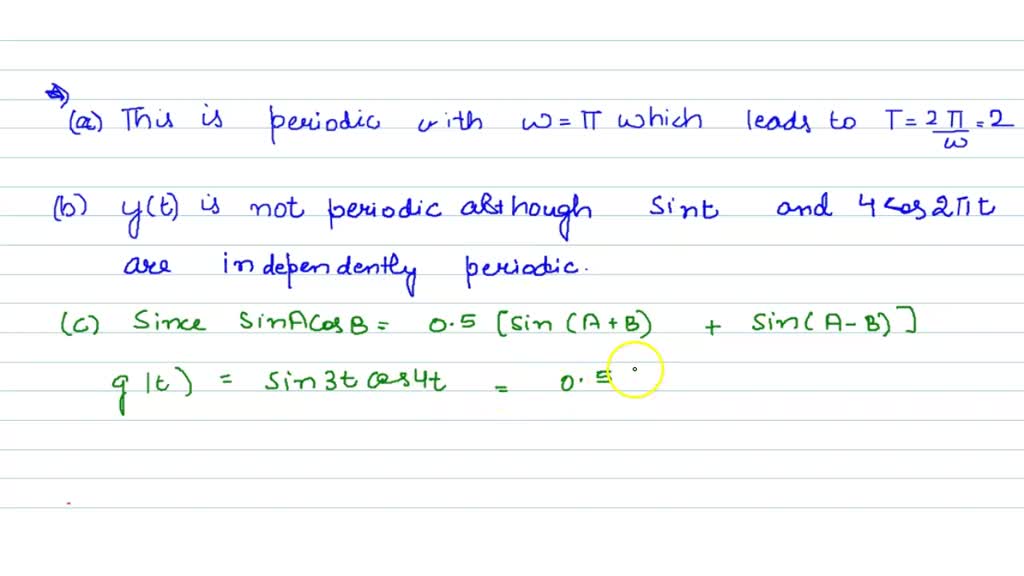 (a) This is periodic with ω = π which leads to T = 2π/ω = 2
(b) y(t) is not periodic although sint and 4 cos2πt
are independently periodic.
(c) Since sinAcosB = 0.5 [sin (A+B) + sin(A-B)]
g(t) = sin3t cos4t = 0.5